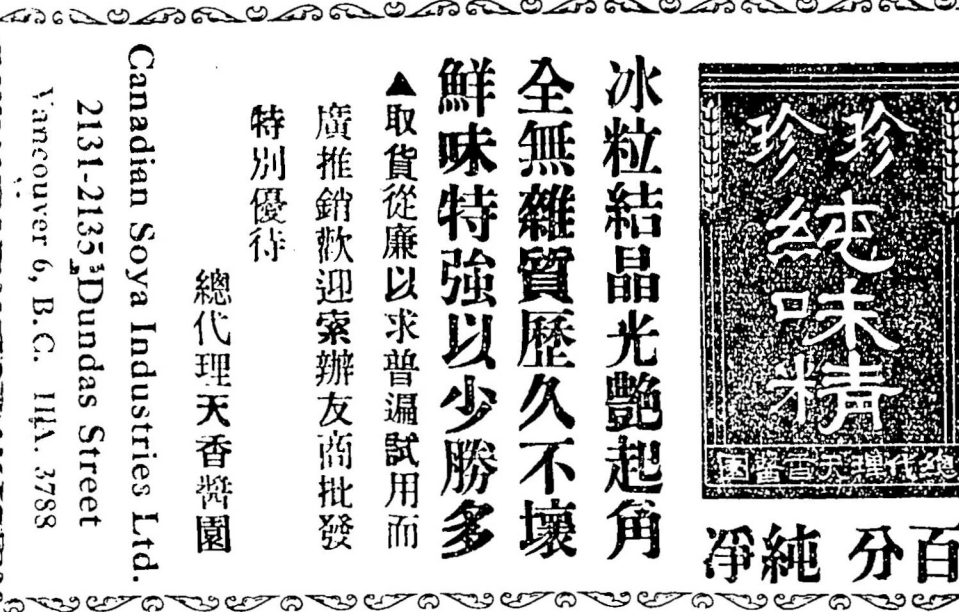 珍珍
純味精
總代理天香醬園
百分 純淨
冰粒結晶光艷起角
全無雜質歷久不壞
鮮味特強以少勝多
▲取貨從廉以求普遍試用而
廣推銷歡迎索辦友商批發
特別優待
總代理天香醬園
Canadian Soya Industries Ltd.
2131-2135 Dundas Street
Vancouver 6, B.C. HA. 3788